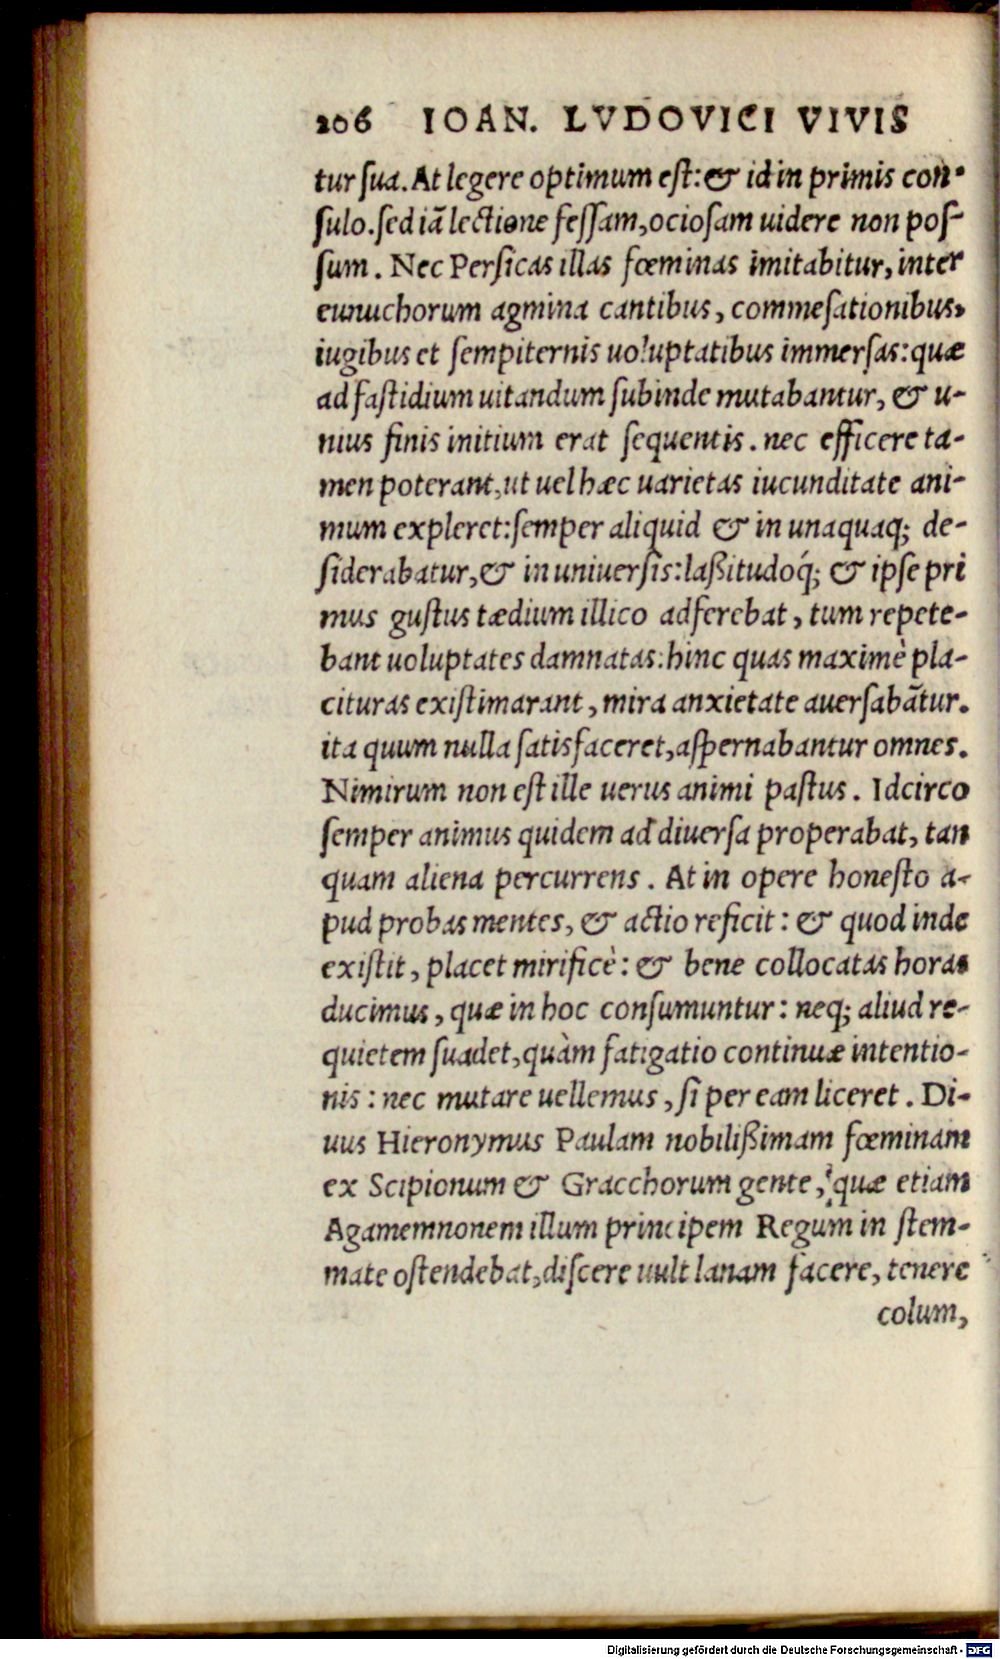 206 IOAN. LVDOVICI VIVIS
tur ſua. At legere optimum eſt: & id in primis con-
ſulo. ſed iā lectione feſſam, ocioſam uidere non poſ-
ſum. Nec Perſicas illas fœminas imitabitur, inter
eunuchorum agmina cantibus, commeſationibus,
iugibus et ſempiternis uoluptatibus immerſas: quæ
ad faſtidium uitandum ſubinde mutabantur, & u-
nius finis initium erat ſequentis. nec efficere ta-
men poterant, ut uel hæc uarietas iucunditate ani-
mum expleret: ſemper aliquid & in unaquaq; de-
ſiderabatur, & in uniuerſis: laßitudoq́; & ipſe pri
mus guſtus tædium illico adferebat, tum repete-
bant uoluptates damnatas: hinc quas maximè pla-
cituras exiſtimarant, mira anxietate auerſabātur.
ita quum nulla ſatisfaceret, aſpernabantur omnes.
Nimirum non eſt ille uerus animi paſtus. Idcirco
ſemper animus quidem ad diuerſa properabat, tan
quam aliena percurrens. At in opere honeſto a-
pud probas mentes, & actio reficit: & quod inde
exiſtit, placet mirificè: & bene collocatas horas
ducimus, quæ in hoc conſumuntur: neq; aliud re-
quietem ſuadet, quàm fatigatio continuæ intentio-
nis: nec mutare uellemus, ſi per eam liceret. Di-
uus Hieronymus Paulam nobilißimam fœminam
ex Scipionum & Gracchorum gente, quæ etiam
Agamemnonem illum principem Regum in ſtem-
mate oſtendebat, diſcere uult lanam facere, tenere
colum,
Digitalisierung gefördert durch die Deutsche Forschungsgemeinschaft - DFG